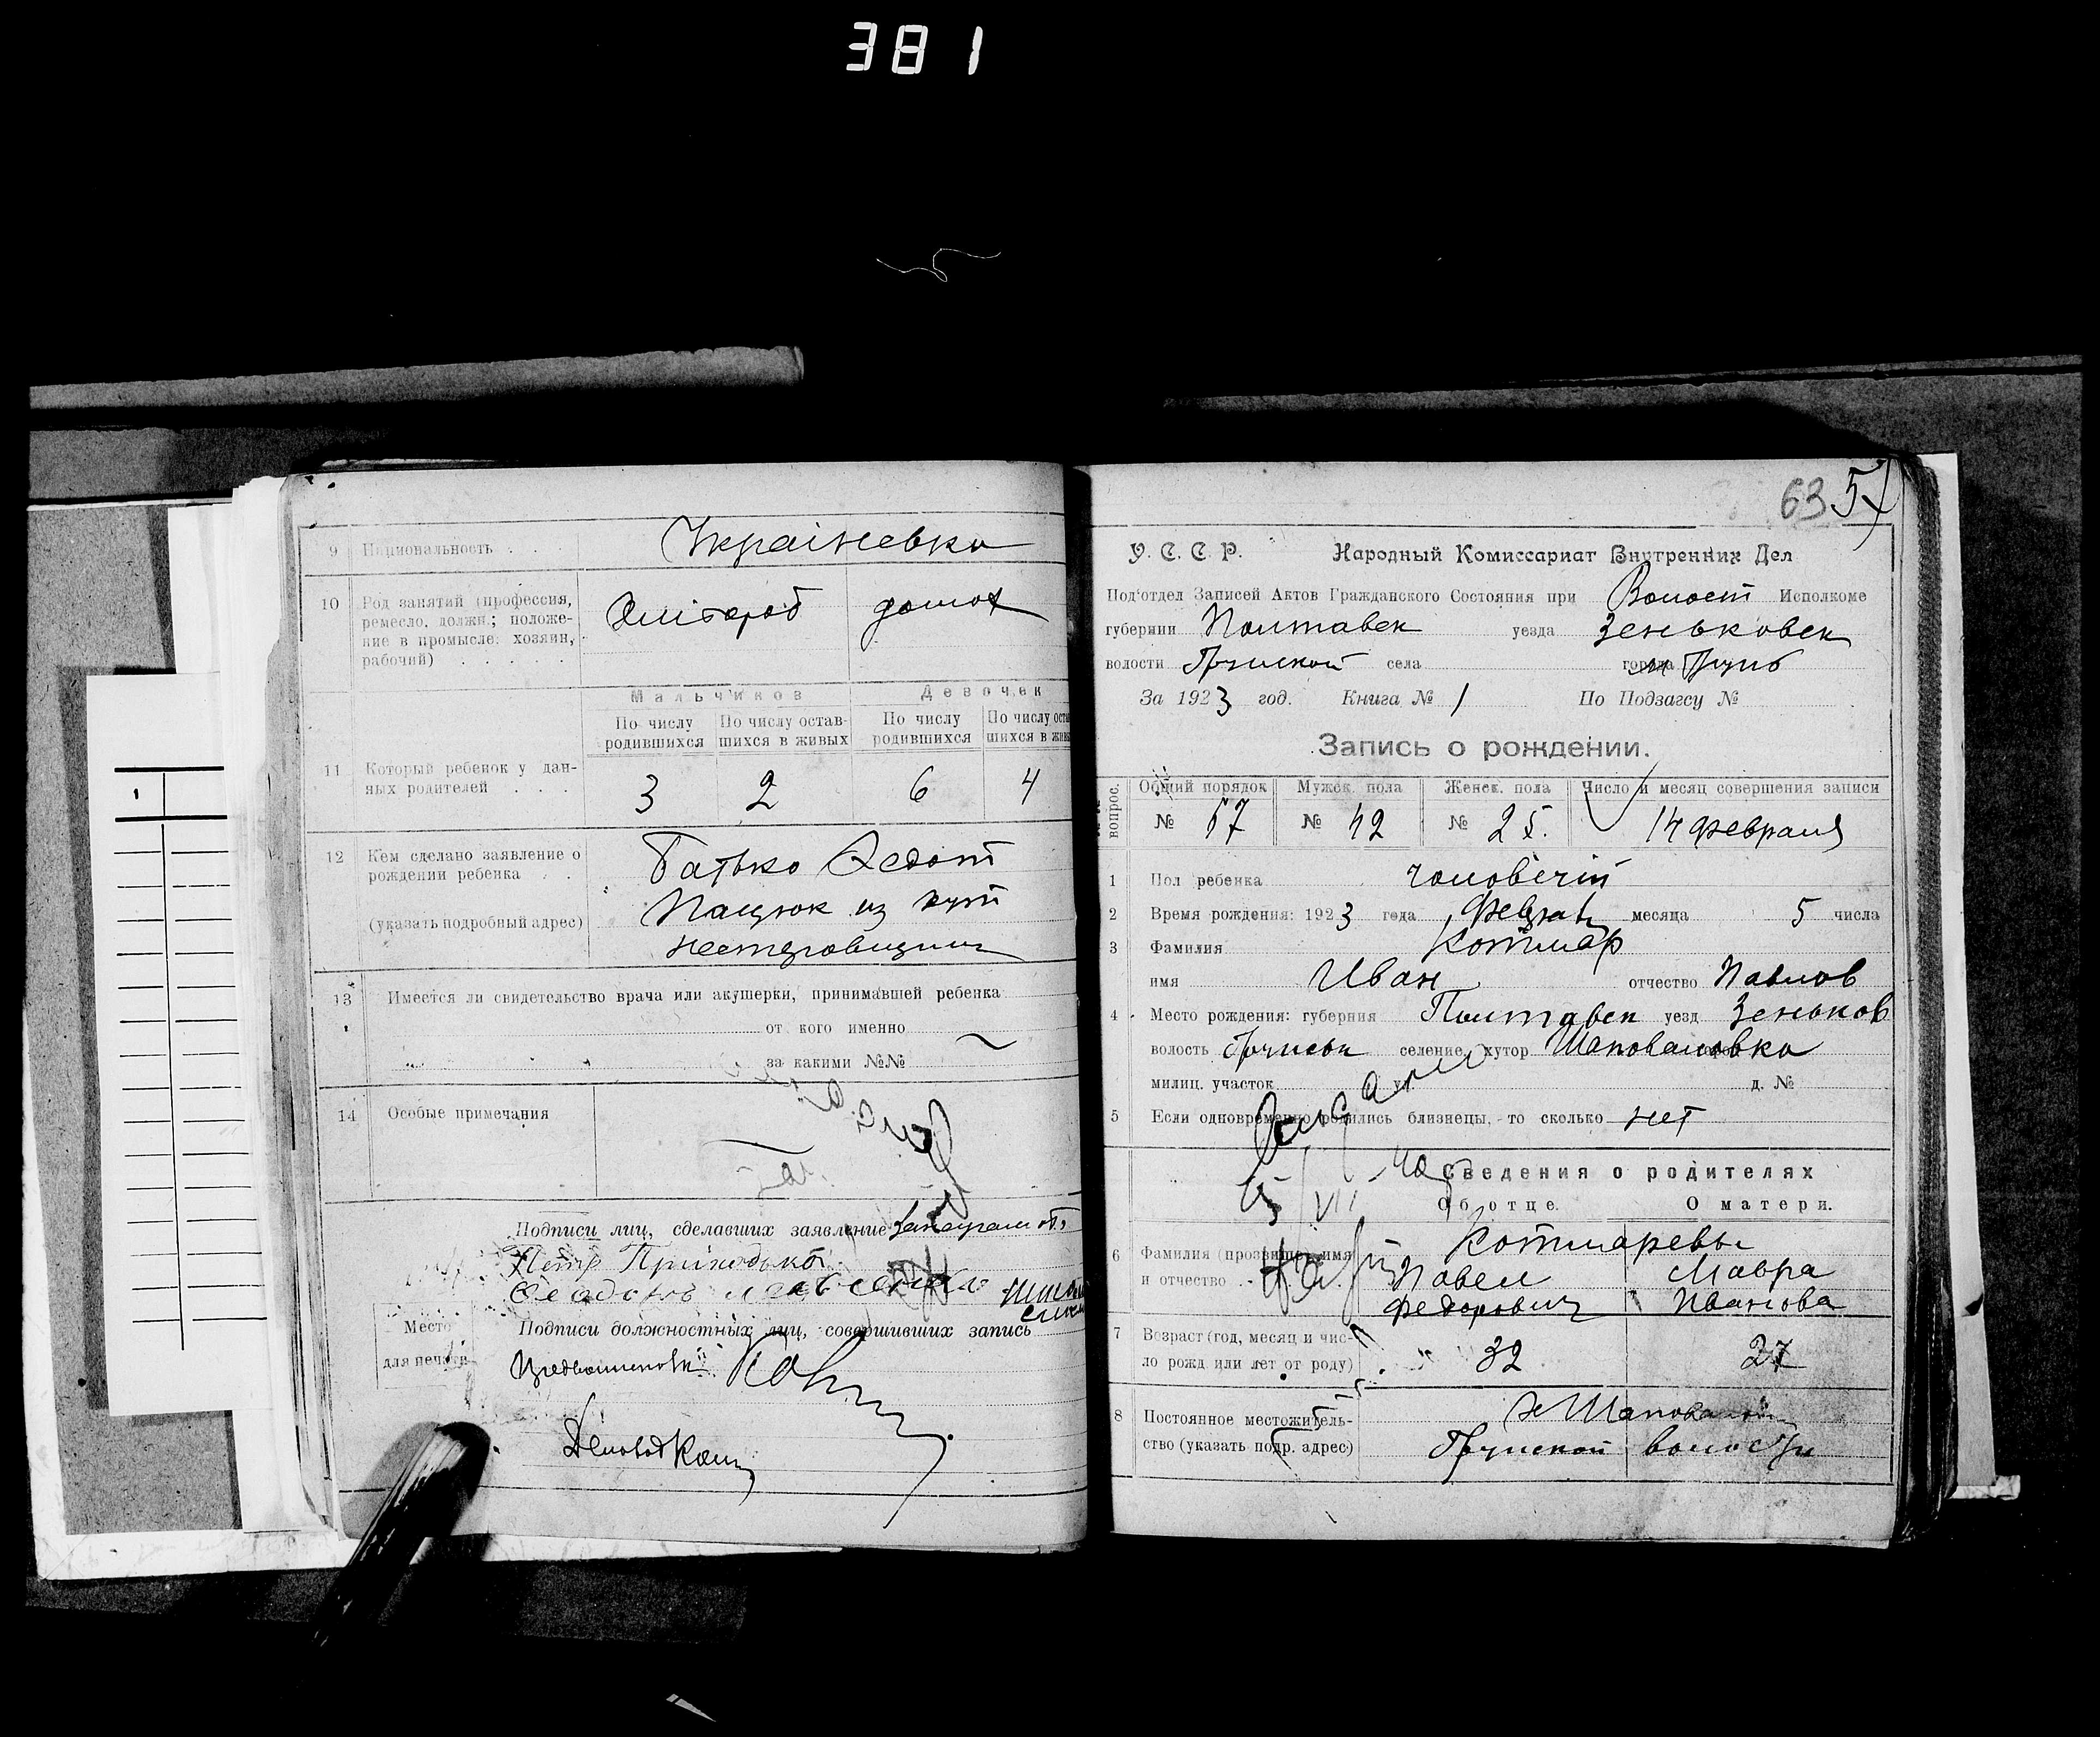 381
9 Национальность . . . Українська
10 Род занятий (профессия, Хлібороб домох
ремесло, должн.; положе-
ние в промысле: хозяин,
рабочий) . . . . .
Мальчиков Девочек
По числу родившихся По числу остав-шихся в живых По числу родившихся По числу оста шихся в жив
11 Который ребенок у дан-
ных родителей . . . 3 2 6 4
12 Кем сделано заявление о Батько Федот
рождении ребенка . .
(указать подробный адрес) Пацюк из хут
Нестеровщини
13 Имеется ли свидетельство врача или акушерки, принимавшей ребенка
от кого именно
за какими №№
14 Особые примечания
Подписи лиц, сделавших заявление
Петр Приходько
Место Подписи должностных лиц, совершивших запись
для печати
Деловод
63 57
У. С. С. Р. Народный Комиссариат Внутренних Дел
Под'отдел Записей Актов Гражданского Состояния при Волост Исполкоме
губернии Полтавск уезда Зеньковск
волости Грунской села города м Грунь
За 1923 год. Книга № 1 По Подзагсу №
Запись о рождении.
вопрос. Общий порядок Мужск. пола Женск. пола Число и месяц совершения записи
№ 57 № 32 № 25. 14 февраля
1 Пол ребенка чоловічий
2 Время рождения: 1923 года Февраль месяца 5 числа
3 Фамилия Котляр
имя Иван отчество Павлов
4 Место рождения: губерния Полтавск уезд Зеньков
волость Грунськ селение, хутор Шаповаловка
милиц. участок ул д. №
5 Если одновременно родились близнецы, то сколько нет
Сведения о родителях
Об отце. О матери.
6 Фамилия (прозвище), имя Котляревы
и отчество . . Павел Мавра
Федорович Иванова
7 Возраст (год, месяц и чис-
ло рожд. или лет от роду) 32 27
8 Постоянное местожитель- х Шаповаловка
ство (указать подр. адрес) Грунской волости